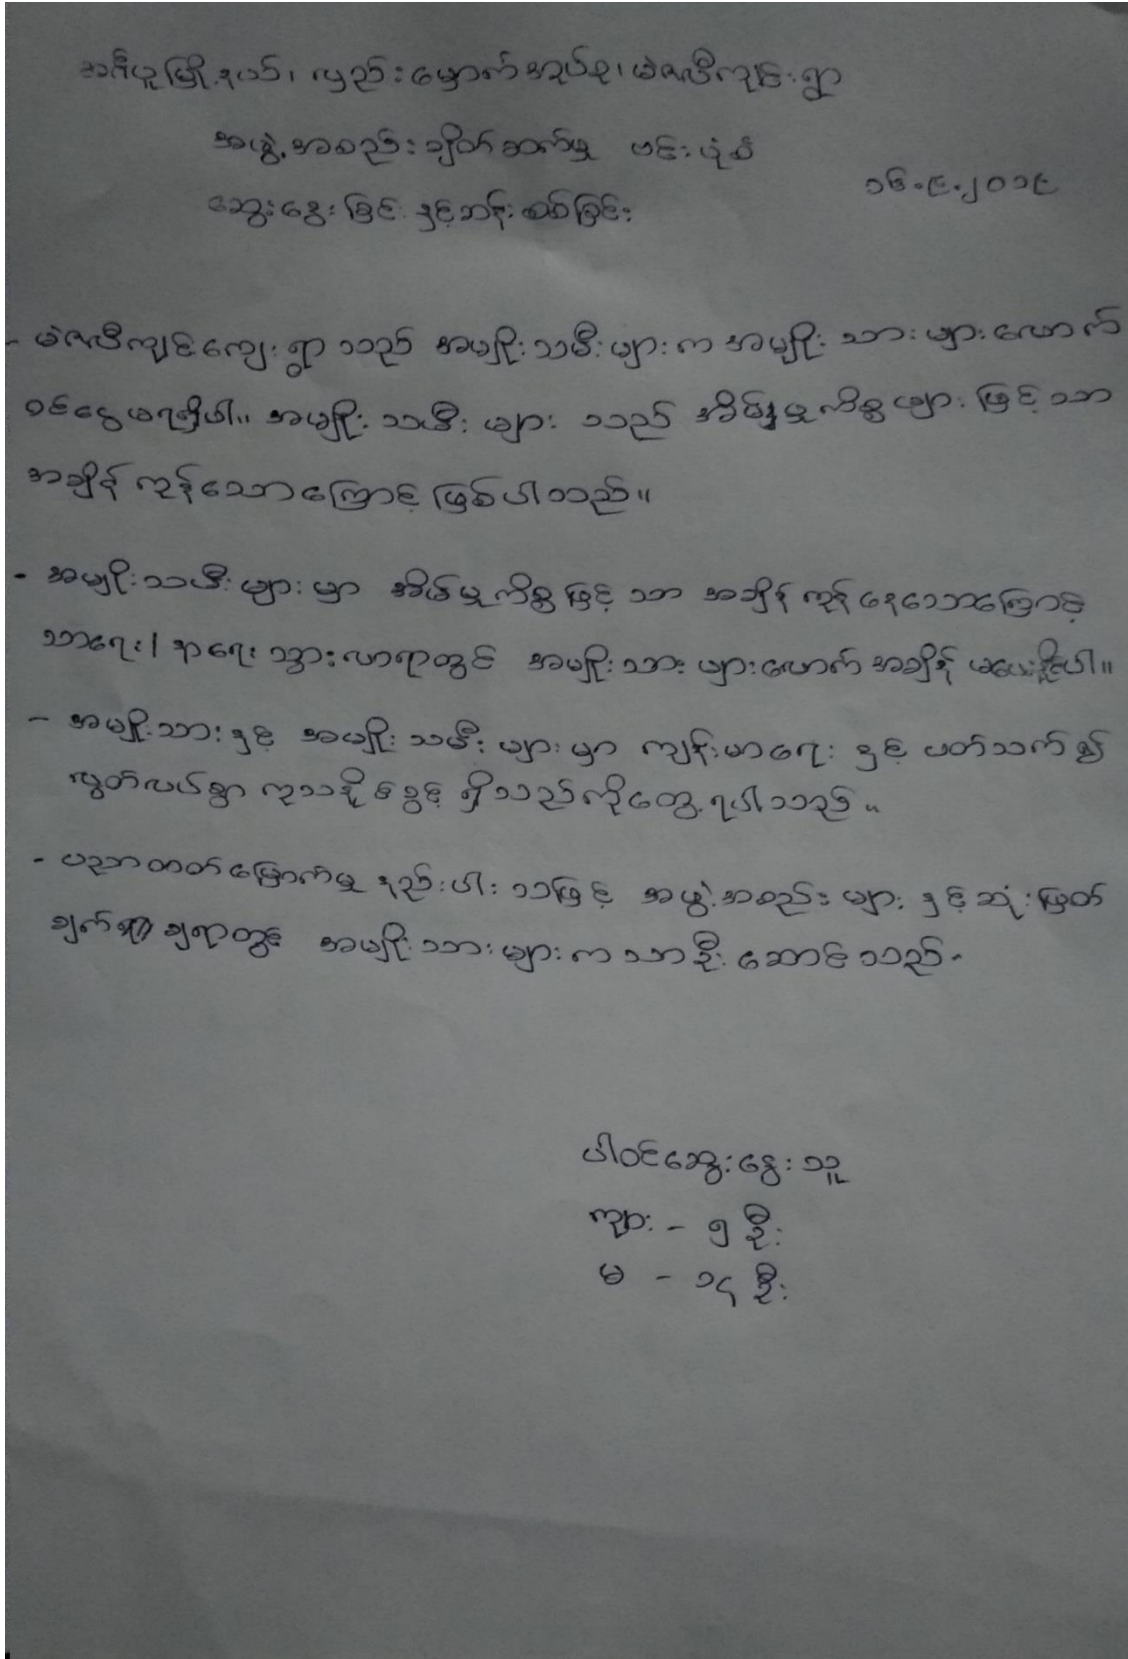 အင်္ဂပူမြို့နယ်၊ လှည်းမှောက်အုပ်စု၊ မဲဇလီကျင်းရွာ
အဖွဲ့အစည်းချိတ်ဆက်မှု ဗင်းပုံစံ
၁၆.၉.၂၀၁၉
ဆွေးနွေးခြင်း နှင့်ဆန်းစစ်ခြင်း
- မဲဇလီကျင်းကျေးရွာသည် အမျိုးသမီးများက အမျိုးသားများလောက်
ဝင်ငွေမရရှိပါ။ အမျိုးသမီးများသည် အိမ်မှုကိစ္စများဖြင့်သာ
အချိန်ကုန်သောကြောင့်ဖြစ်ပါသည်။
- အမျိုးသမီးများမှာ အိမ်မှုကိစ္စဖြင့်သာ အချိန်ကုန်နေသောကြောင့်
သာရေး/နာရေးသွားလာရာတွင် အမျိုးသားများလောက်အချိန်မပေးနိုင်ပါ။
- အမျိုးသားနှင့် အမျိုးသမီးများမှာ ကျန်းမာရေးနှင့်ပတ်သက်၍
လွတ်လပ်စွာကုသနိုင်ခွင့်ရှိသည်ကိုတွေ့ရပါသည်။
- ပညာတတ်မြောက်မှုနည်းပါးသဖြင့် အဖွဲ့အစည်းများနှင့်ဆုံးဖြတ်
ချက်ချရာတွင် အမျိုးသားများကသာဦးဆောင်သည်။
ပါဝင်ဆွေးနွေးသူ
ကျား - ၅ ဦး
မ - ၁၄ ဦး